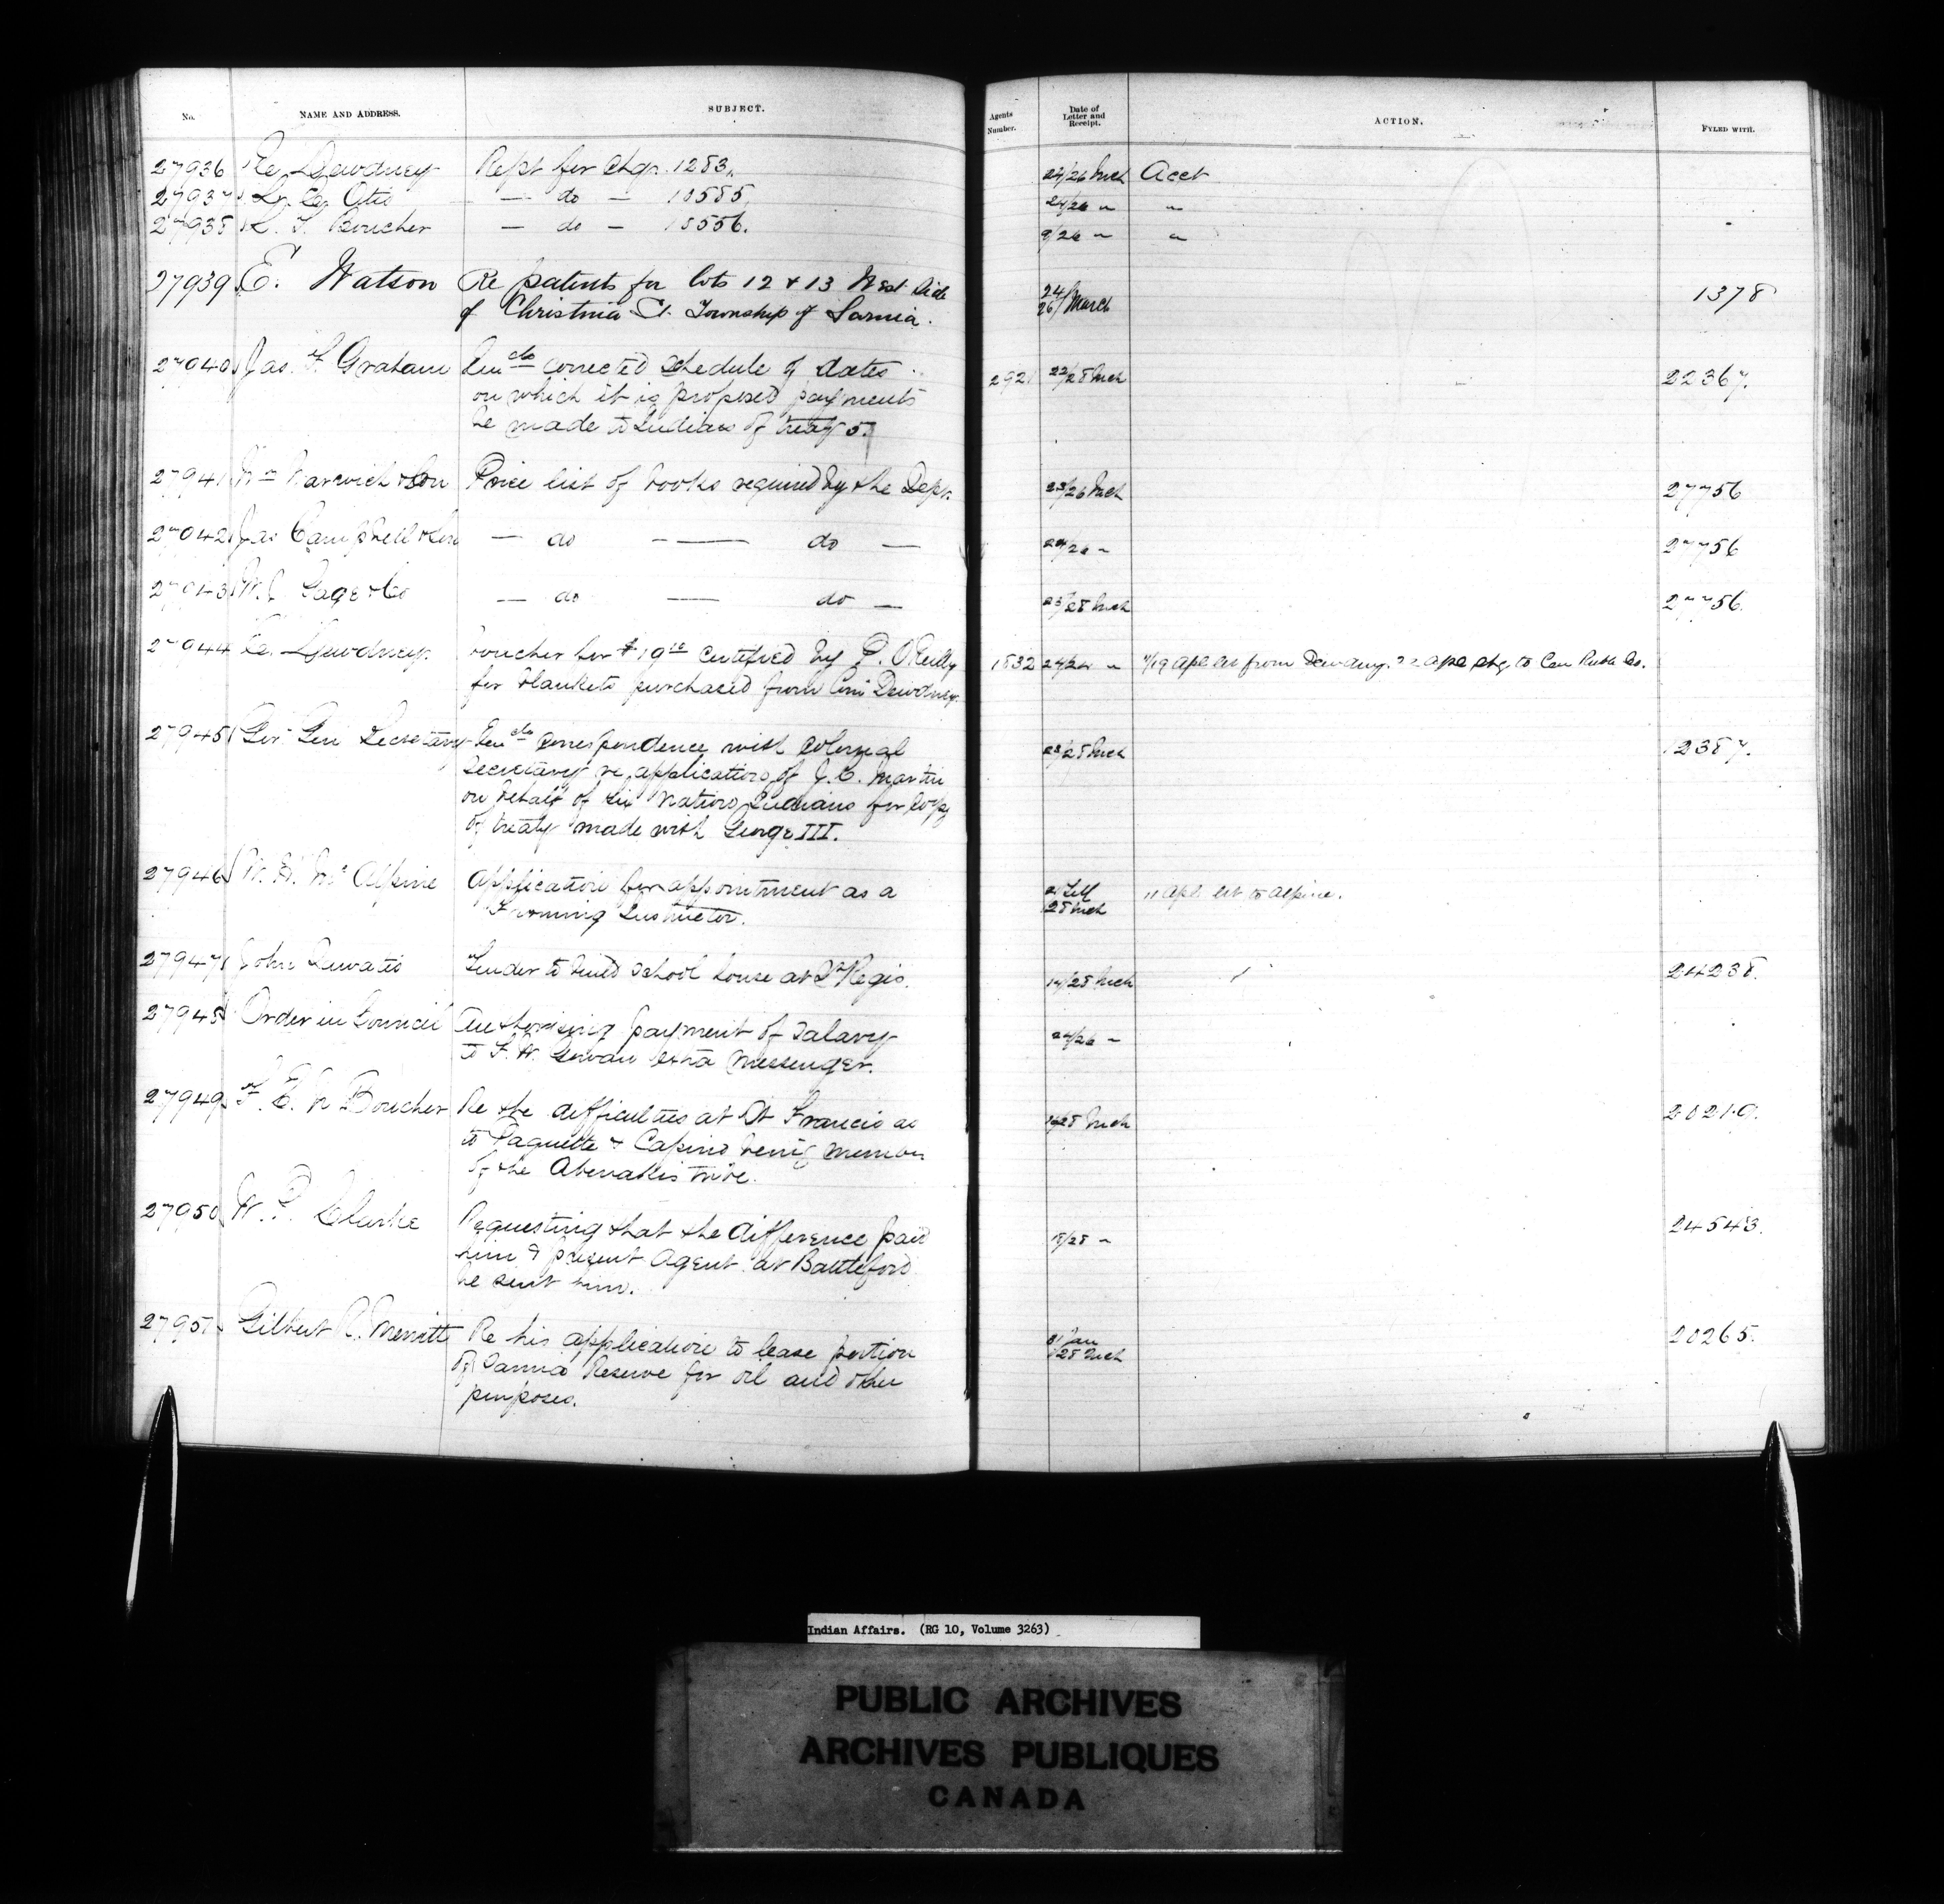 No. NAME AND ADDRESS. SUBJECT. Agents Number. Date of Letter and Receipt. ACTION. FYLED WITH.
27936 E. Dewdney Rept for Chq. 1283. 24/26 Mch Acct
27937 do 24/26 " "
27938 L. F. Boucher — do — 18556. 9/26 " "
27939 E. Watson Re patents for lots 12 & 13 West Side 24/26 March 1378
of Christina St. Township of Sarnia.
27940 Jas. F. Graham Encds corrected schedule of dates 2921 22/28 Mch 22367.
on which it is proposed payments
be made to Indians of treaty 5.
27941 Wm Warwick & Son Price list of books required by the Dept. 23/26 Mch 27756
27942 Jas Campbell & Son — do — — do — 24/26 " 27756
27943 W. J. Gage & Co — do — — do — 27756
27944 E. Dewdney Voucher for $19 certified by P. O'Reilly 1832
for blankets purchased from Dewdney. 19 Apl let from Dewdney. 22 Apl chq to Can Rub Co.
27945 Gov Gen Secretary Encds correspondence with Colonial 12387.
Secretary re application of J. C. Martin
on behalf of Six Nations Indians for copy
of treaty made with George III.
27946 W. H. McAlpine Application for appointment as a 28 Mch 11 Apl. let to Alpine.
Farming Instructor.
27947 John Tender to build school house at St Regis. 14/28 Mch 24238.
27948 Order in Council Authorising payment of salary 24/26 "
to F. W. extra messenger.
27949 Boucher Re the difficulties at St Francis as 28 Mch 20210.
to Paquette & being members
of the Abenakis tribe.
27950 W. P. Clarke Requesting that the difference paid 18/28 " 24543.
him & present Agent at Battleford
be sent him.
27951 Gilbert R. Merritt Re his application to lease portion 31 Jan 28 Mch 20265.
of Sarnia Reserve for oil and other
purposes.
Indian Affairs. (RG 10, Volume 3263)
PUBLIC ARCHIVES
ARCHIVES PUBLIQUES
CANADA